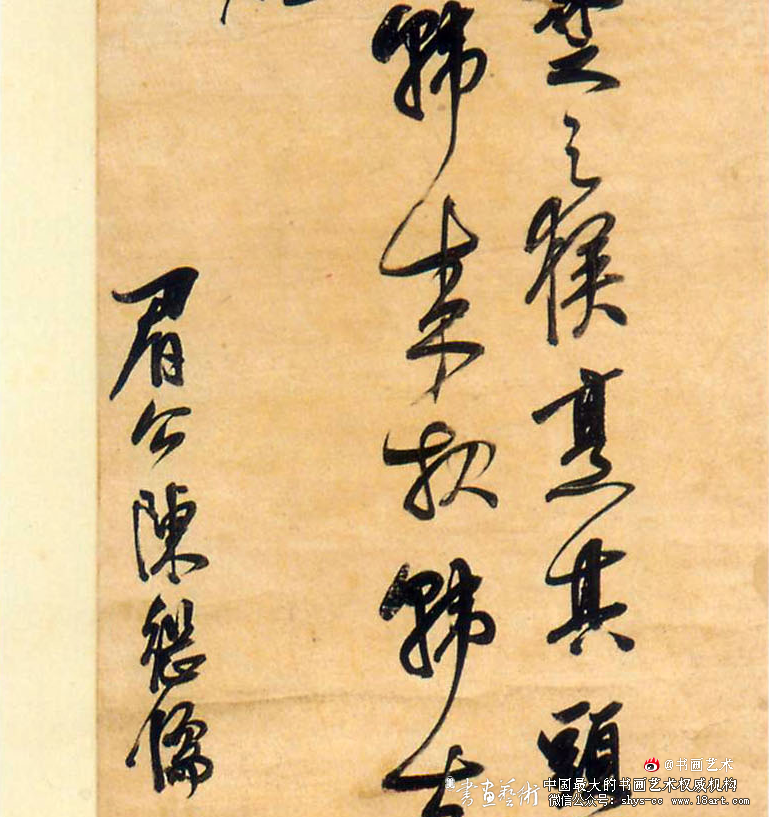 之猴其頭
歸来歸去
眉公陳繼儒
@书画艺术
書画藝術
中国最大的书画艺术权威机构
微信公众号: shys-cc www.18art.com